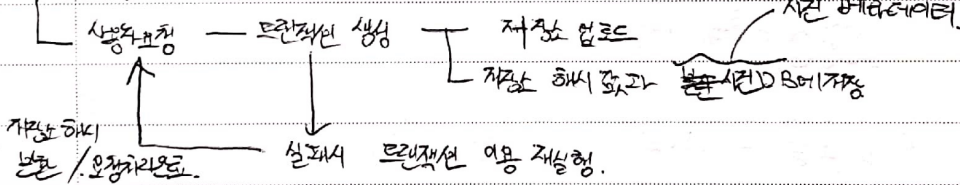 사진 메타데이터.
사용자요청 — 트랜잭션 생성 — 저장소 업로드
저장소 해시 값과 사진DB에 저장
저장소 해시
반환 / 요청처리완료.
실패시 트랜잭션 이용 재실행.